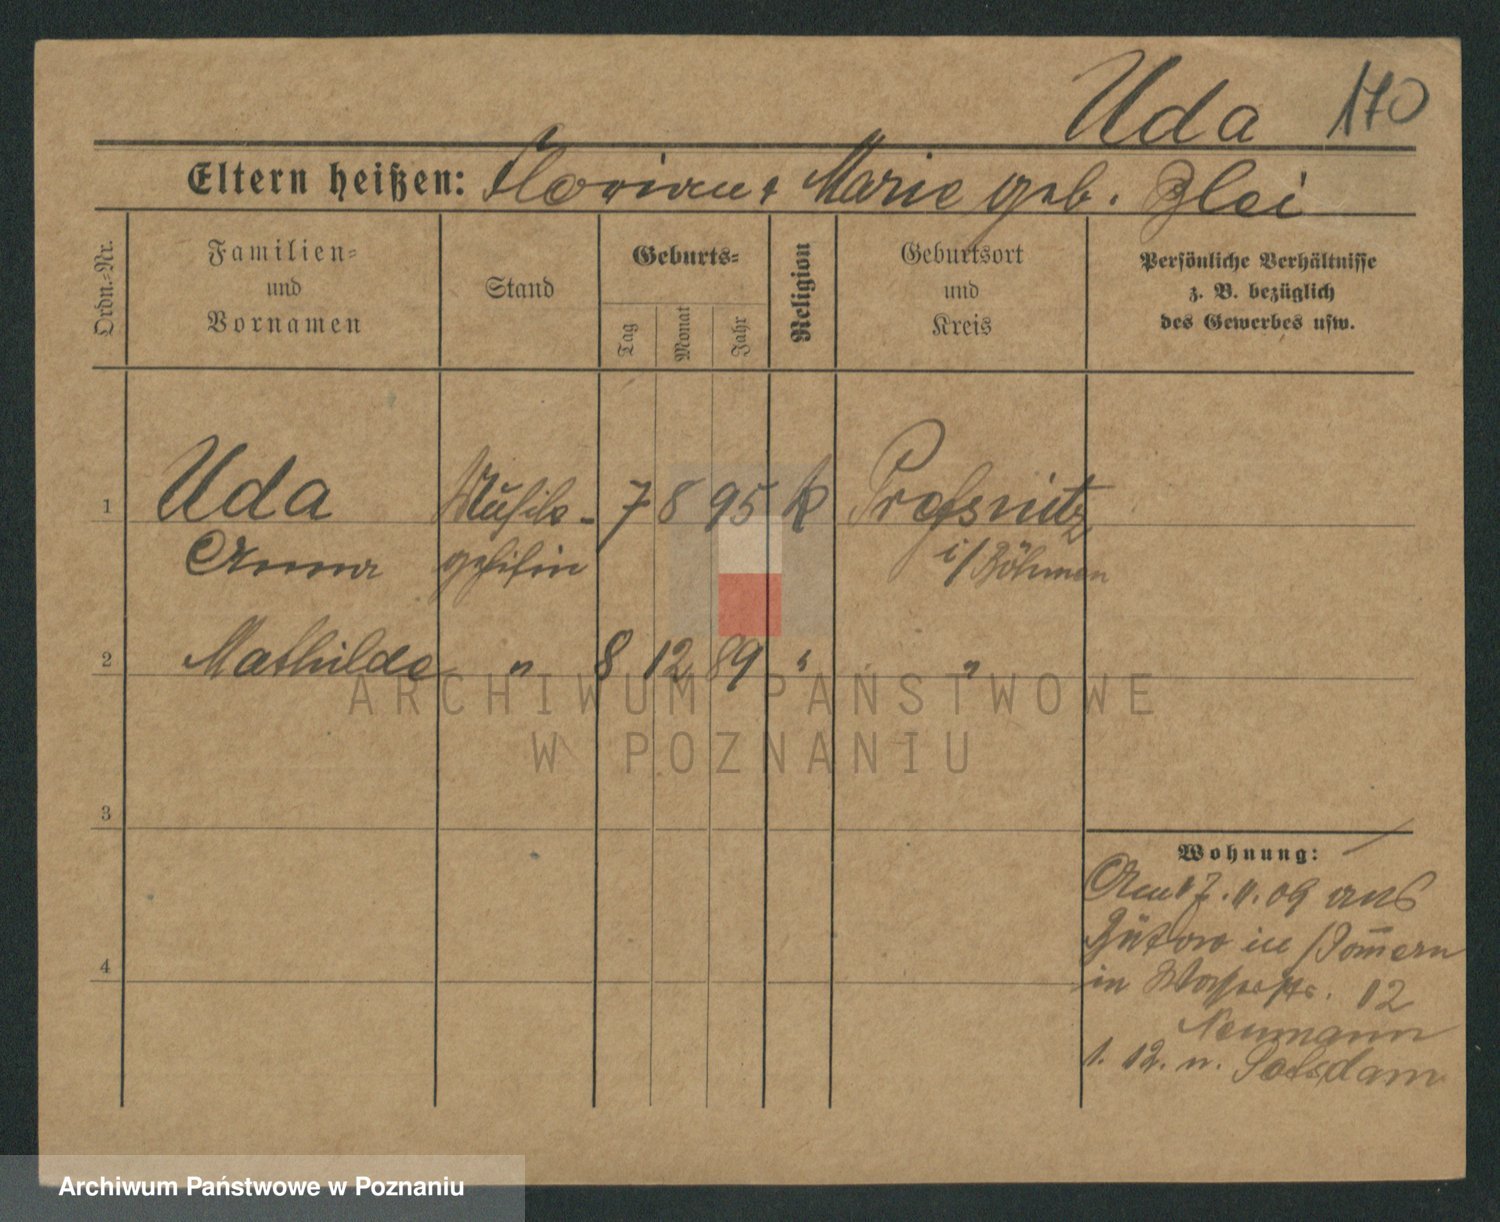 Uda 170
Eltern heißen: Florian & Marie geb. Blei
Ordn.-Nr.
Familien-
und
Vornamen
Stand
Geburts-
Tag
Monat
Jahr
Religion
Geburtsort
und
Kreis
Persönliche Verhältnisse
z. B. bezüglich
des Gewerbes usw.
1 Uda Musik- 7 8 95 k
Anna i/Böhmen
2 Mathilde " 8 12 89 " "
ARCHIWUM PAŃSTWOWE
W POZNANIU
3
Wohnung:
Am 17.11.09 aus
Bütow in Pommern
4
in 12
Neumann
1. 12. n. Potsdam
Archiwum Państwowe w Poznaniu